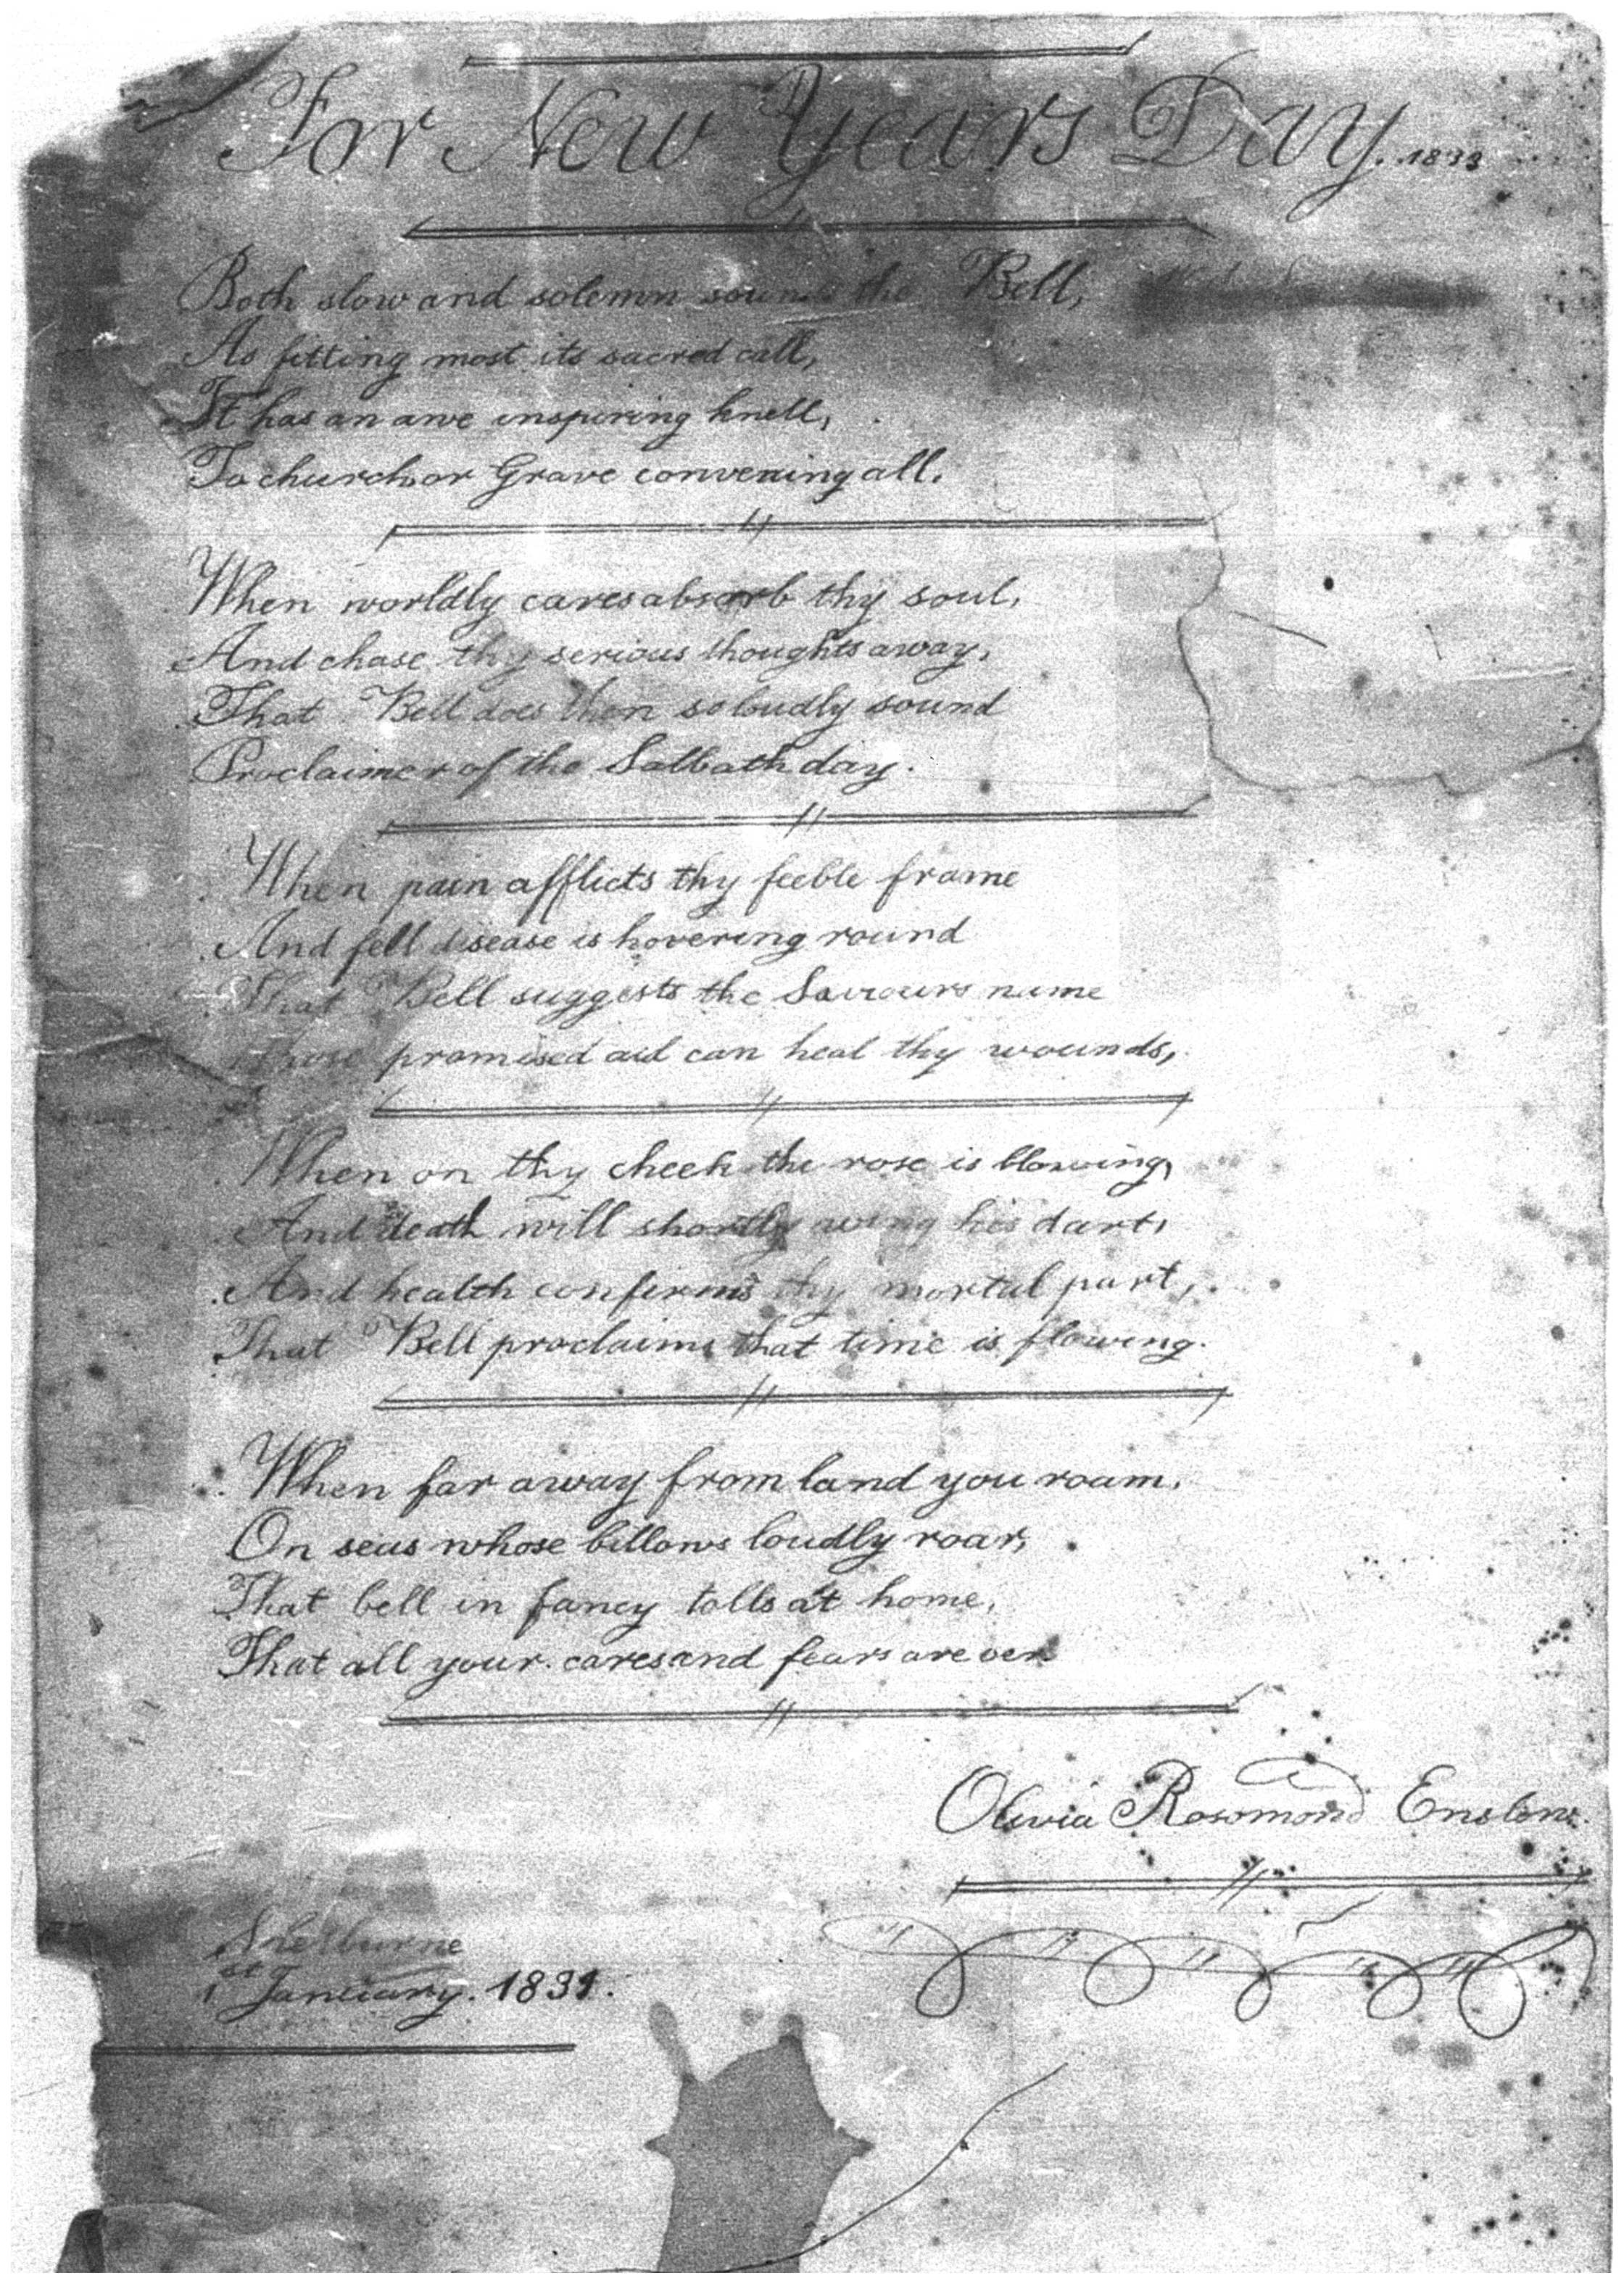 For New Years Day. 1833
Both slow and solemn sounds the Bell,
As fitting most its sacred call,
It has an awe inspiring knell,
To church or Grave convening all.
When worldly cares absorb thy soul,
And chase thy serious thoughts away,
That Bell does then so loudly sound
Proclaimer of the Salbath day.
When pain afflicts thy feeble frame
And fell disease is hovering round
That Bell suggests the Saviours name
promised aid can heal thy wounds,
When on thy cheek the rose is blowing,
And death will shortly wing his dart,
And health confirms thy mortal part,
That Bell proclaims that time is flowing.
When far away from land you roam,
On seas whose billows loudly roar,
That bell in fancy tolls at home,
That all your cares and fears are oer
Olivia Rosomond Enslow
Shelburne
1st January. 1833.